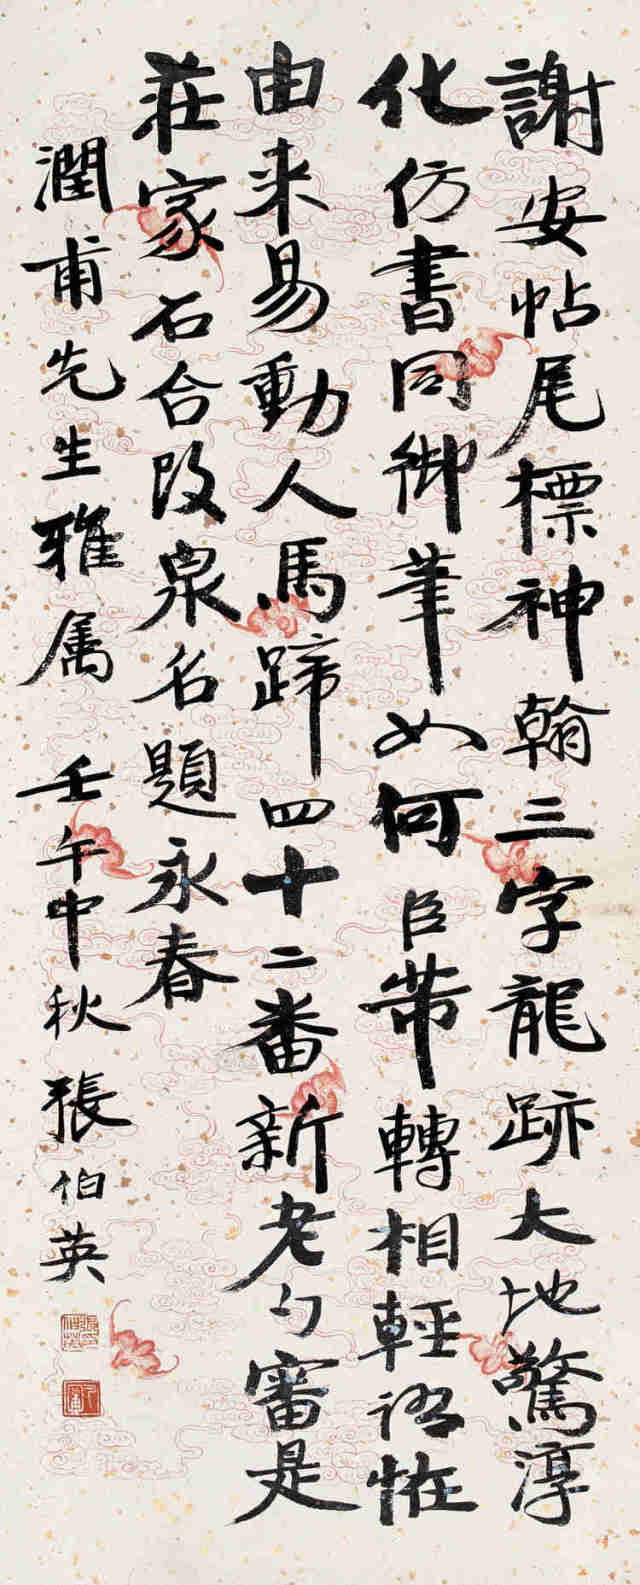 謝安帖尾標神翰三字龍跡大地驚淳
化仿書同御筆如何臣帶轉相輕恠
由来易動人馬蹄四十二番新老審是
莊家石合改泉名題永春
潤甫先生雅属 壬午中秋 張伯英